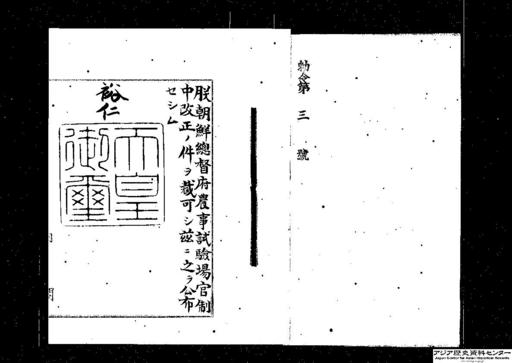 勅令第三號
朕朝鮮總督府農事試驗場官制
中改正ノ件ヲ裁可シ茲ニ之ヲ公布
セシム
裕仁
天皇
御璽
アジア歴史資料センター
Japan Center for Asian Historical Records